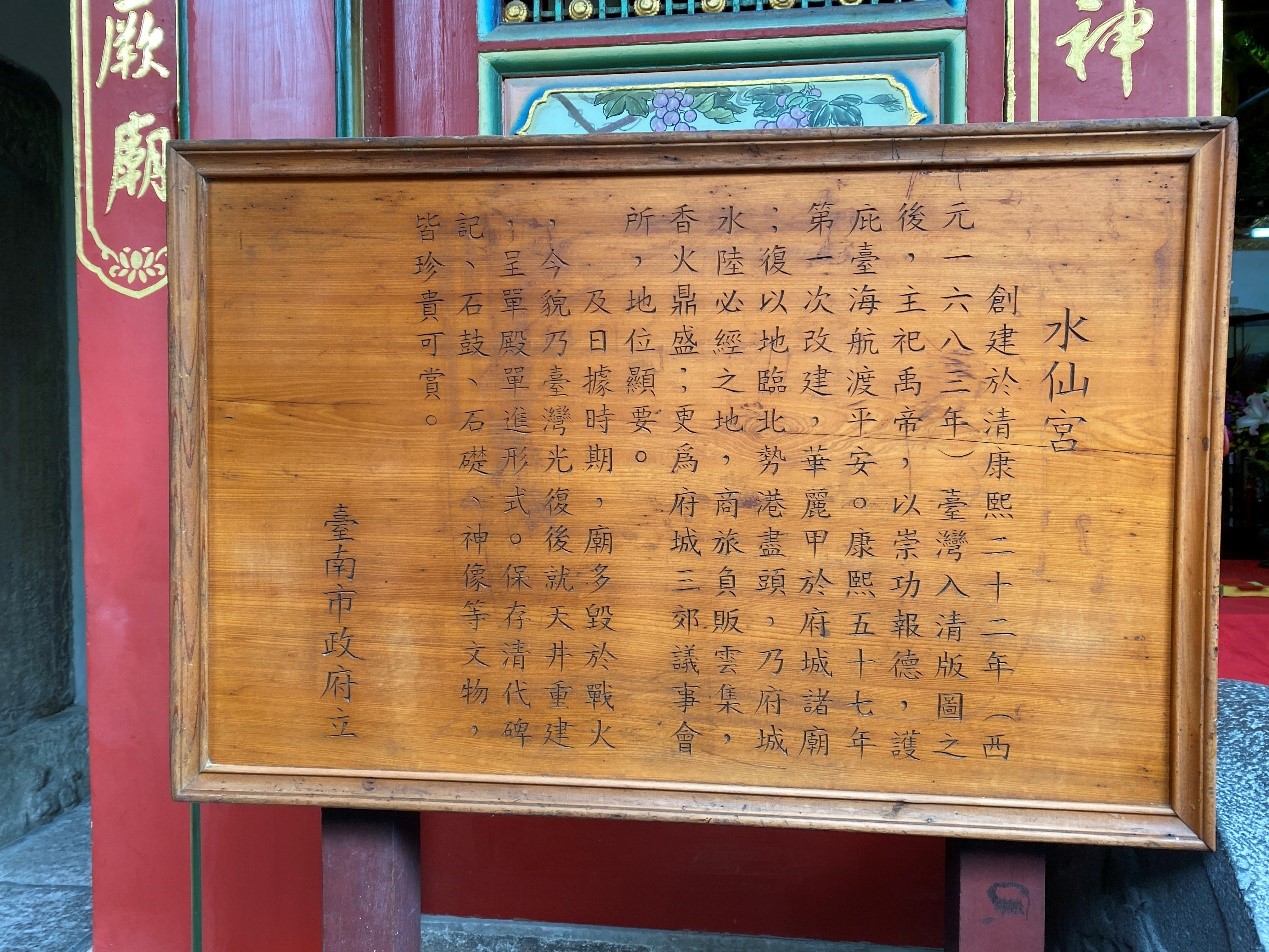 水仙宮
創建於清康熙二十二年（西
元一六八三年）臺灣入清版圖之
後，主祀禹帝，以崇功報德，護
庇臺海航渡平安。康熙五十七年
第一次改建，華麗甲於府城諸廟
；復以地臨北勢港盡頭，乃府城
水陸必經之地，商旅負販雲集，
香火鼎盛；更為府城三郊議事會
所，地位顯要。
及日據時期，廟多毀於戰火
，今貌乃臺灣光復後就天井重建
；呈單殿單進形式。保存清代碑
記、石鼓、石礎、神像等文物，
皆珍貴可賞。
臺南市政府立
神
厥廟